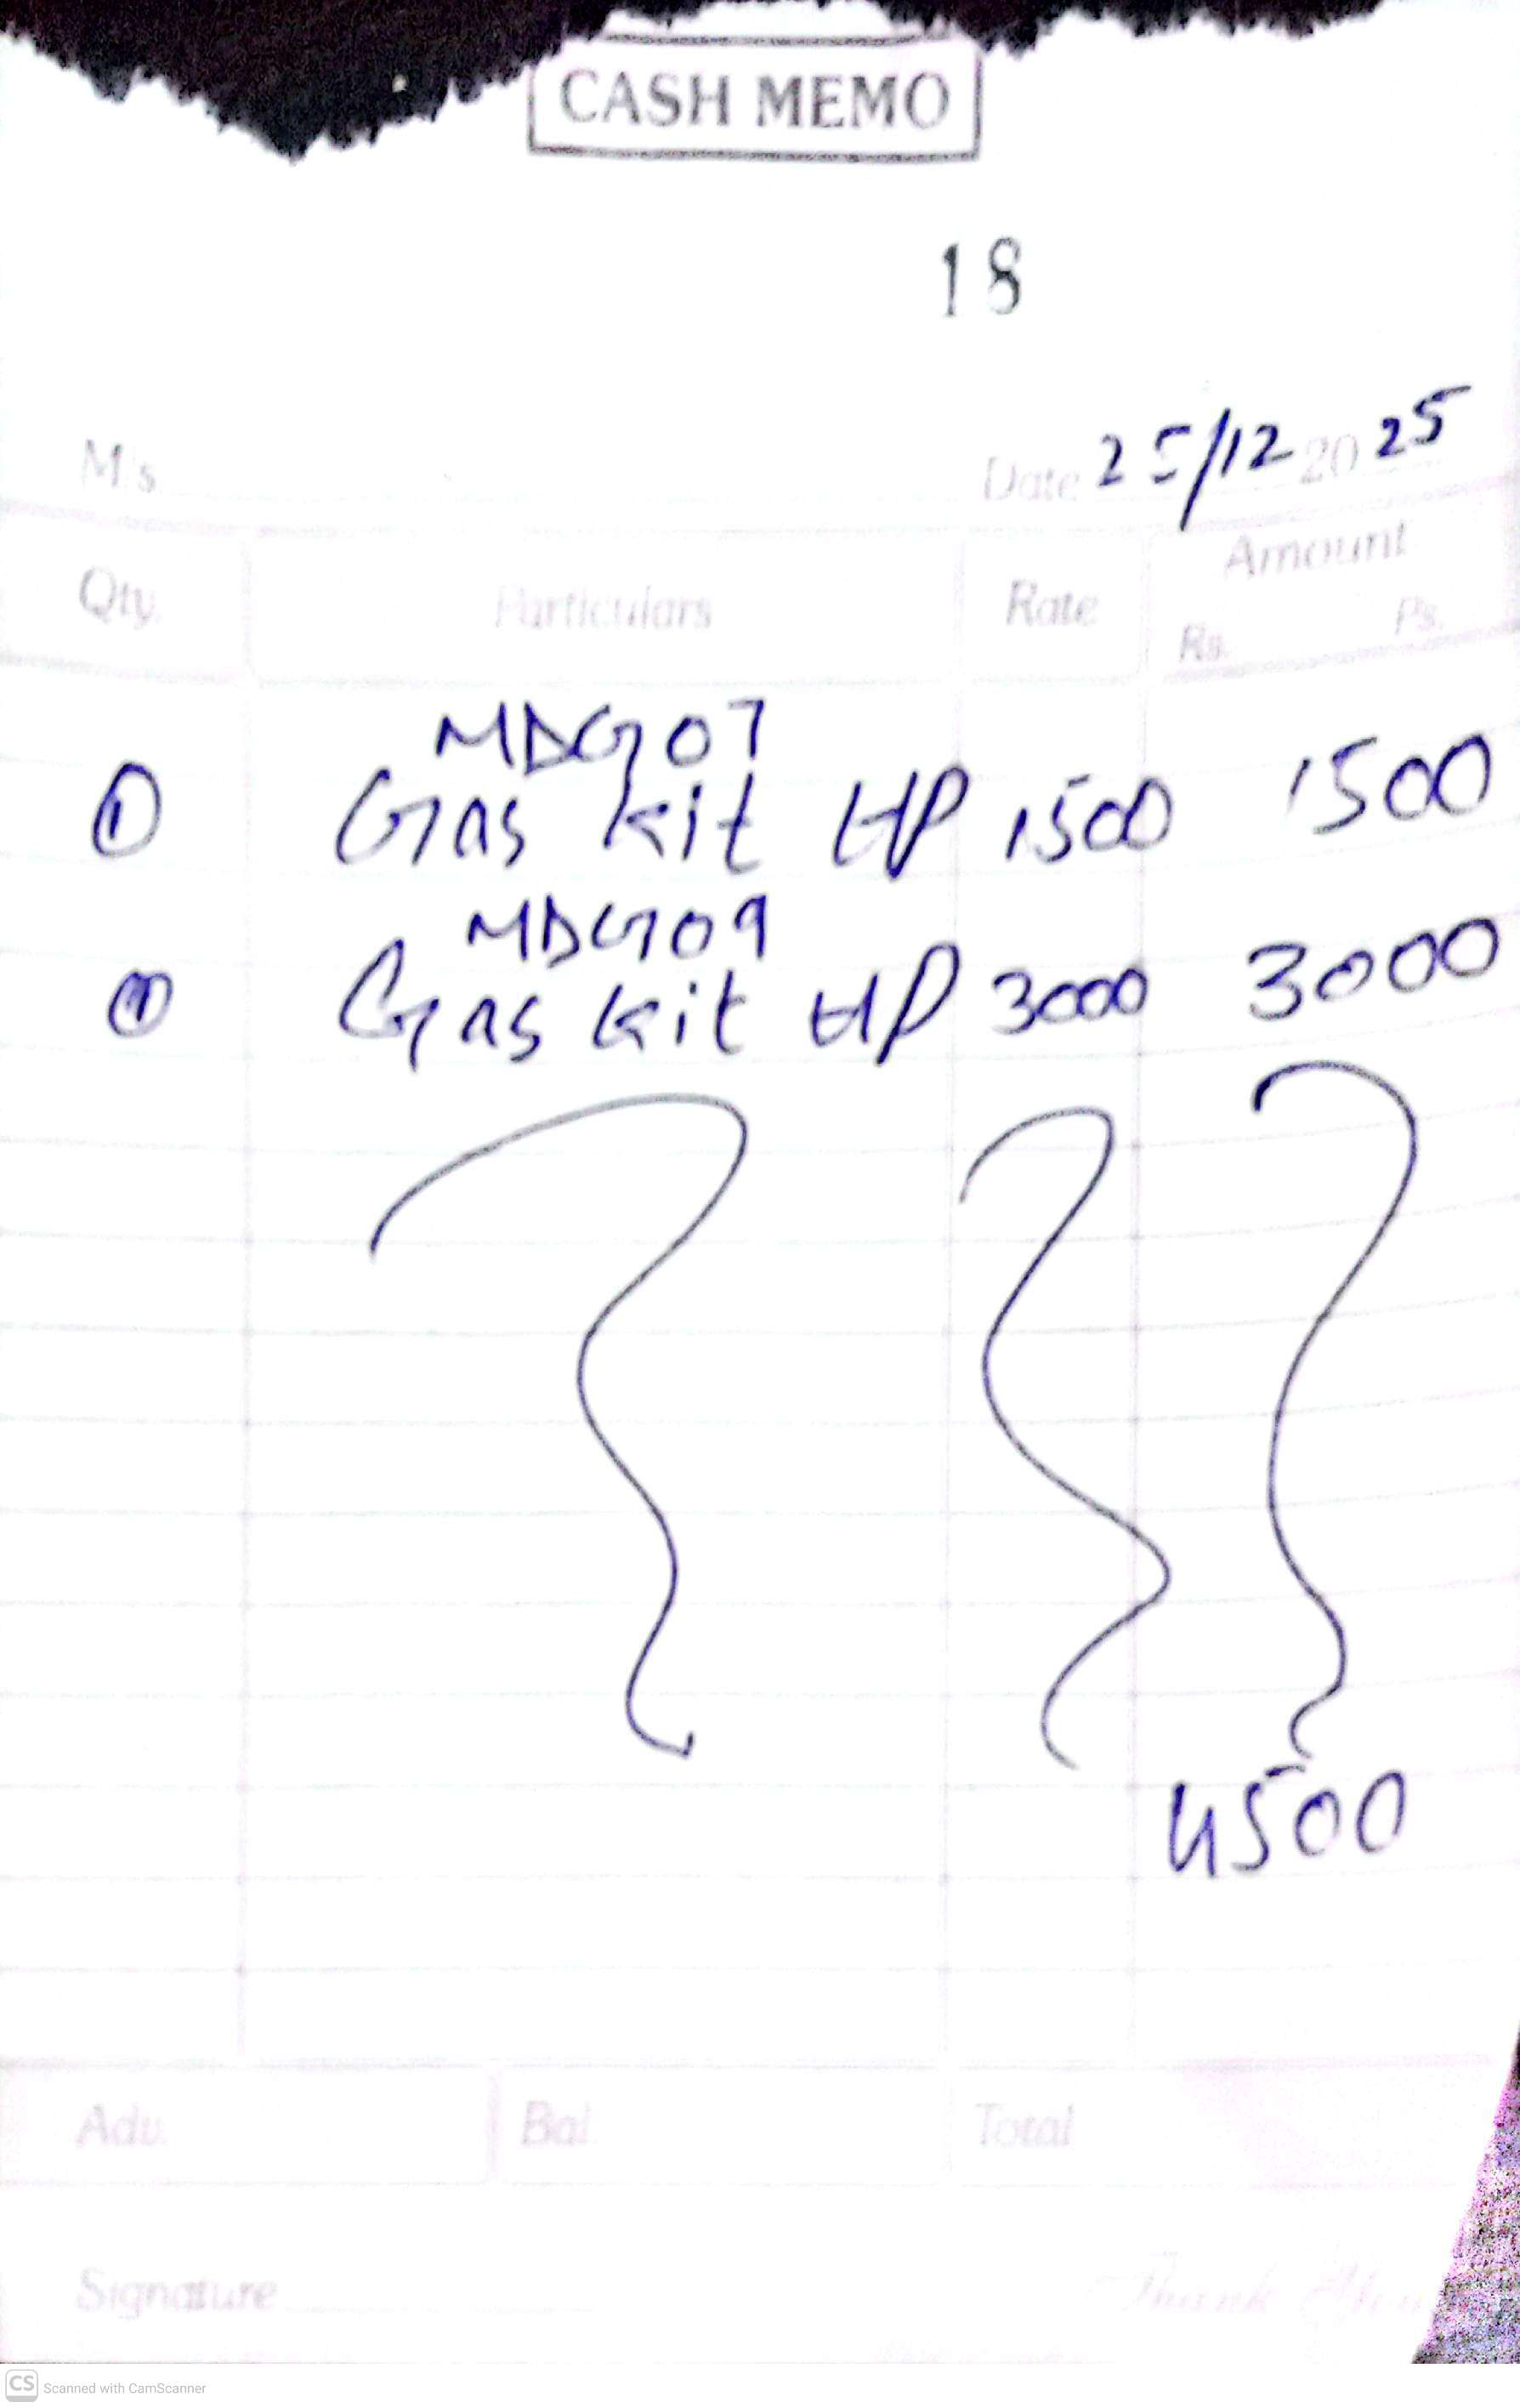 CASH MEMO
18
M/s Date 25/12 2025
Qty. Particulars Rate Amount
Rs. Ps.
MDG07
1 Gas Kit HP 1500 1500
MDG09
1 Gas Kit HP 3000 3000
4500
Adv. Bal. Total
Signature Thank You
CS Scanned with CamScanner